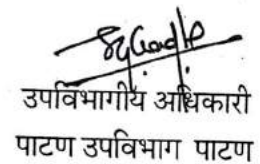 उपविभागीय अधिकारी
पाटण उपविभाग पाटण